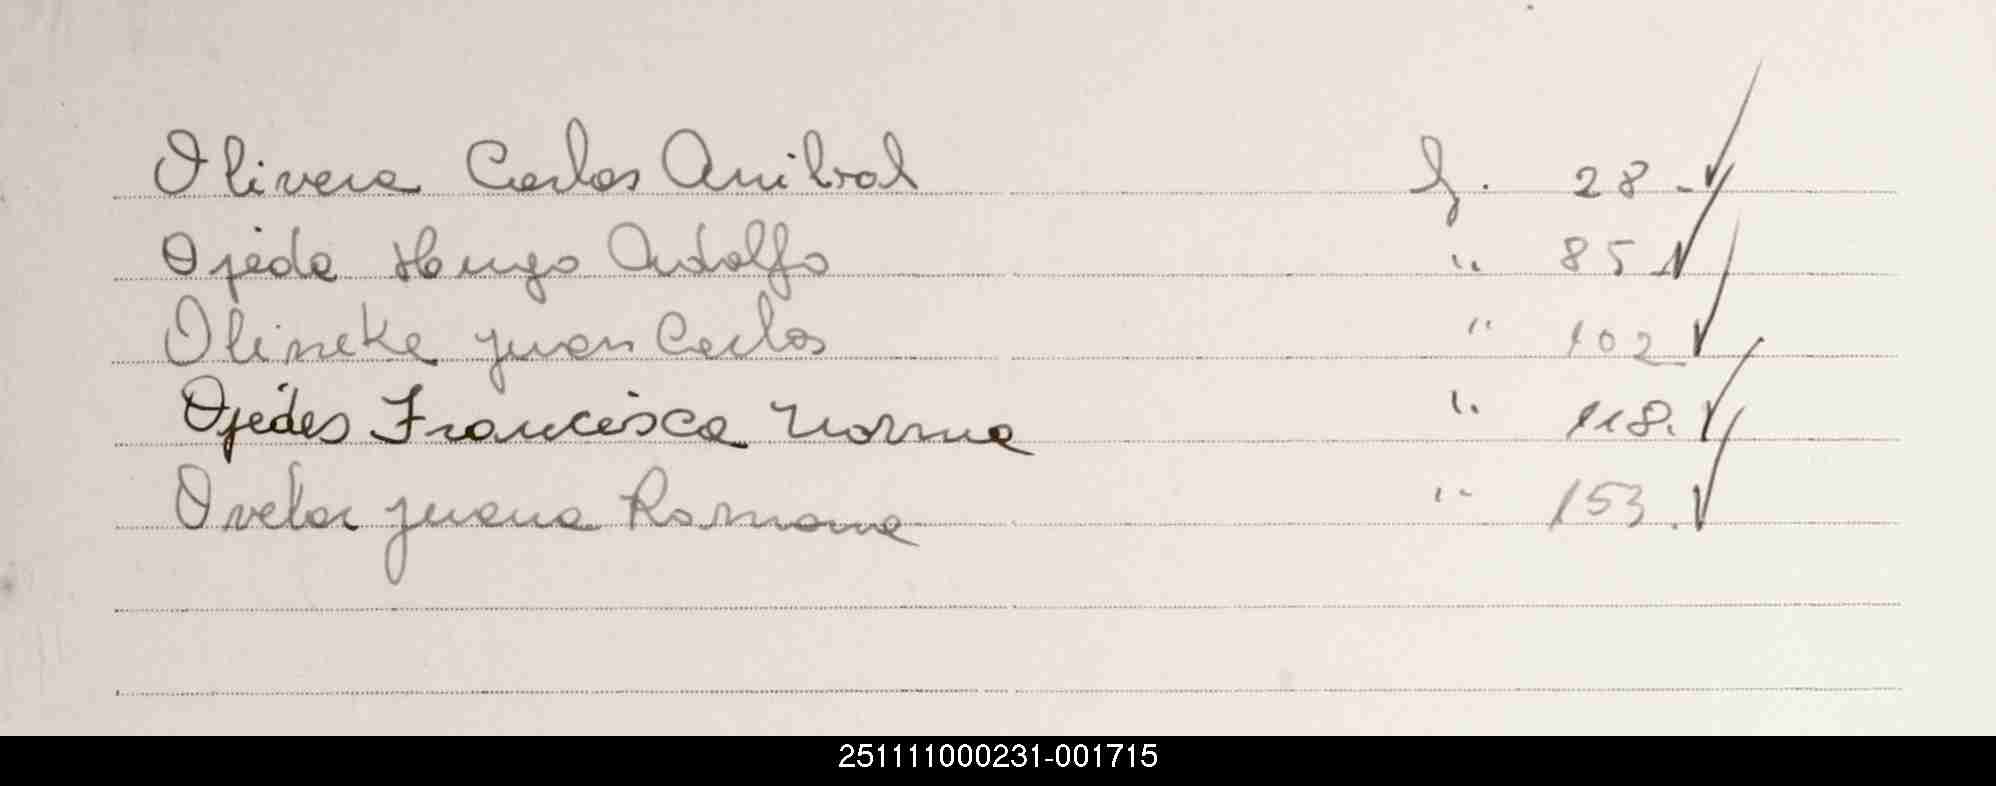 Olivera Carlos Anibal f. 28
Ojeda Hugo Adolfo " 85
Olineke Juan Carlos " 102
Ojedes Francisca Norma " 118.
Ovelar Juana Romana " 153.
251111000231-001715